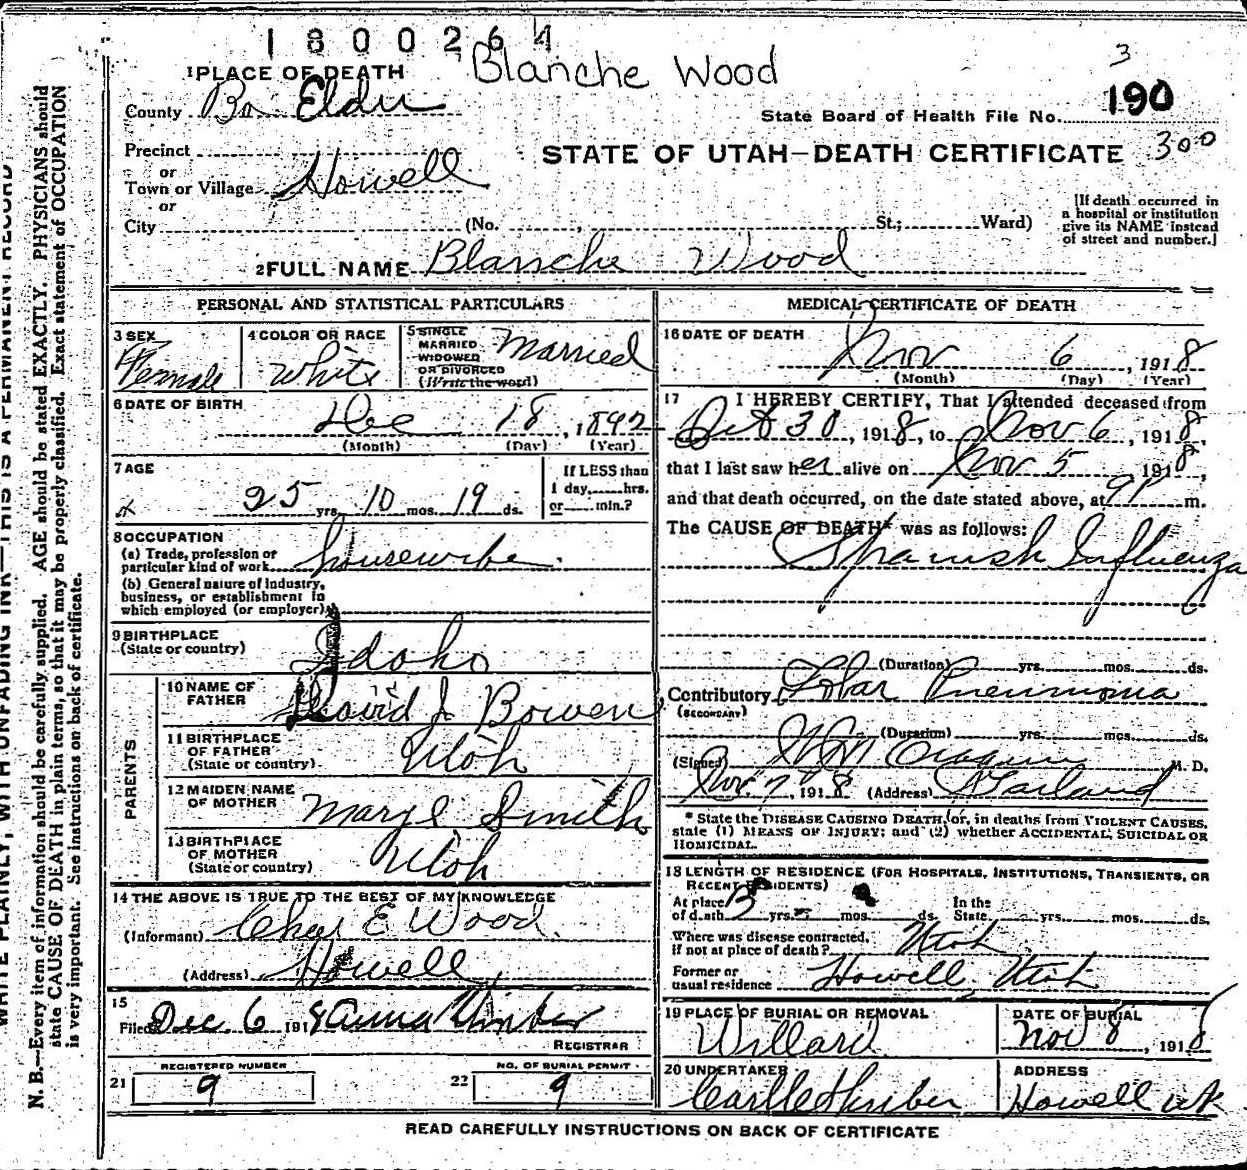 1800264
Blanche Wood
3
1 PLACE OF DEATH
County Bo Elder
190
State Board of Health File No.
300
Precinct
STATE OF UTAH—DEATH CERTIFICATE
or
Town or Village Howell
or
City (No. , St.; Ward)
[If death occurred in
a hospital or institution
give its NAME instead
of street and number.]
2 FULL NAME Blansche Wood
PERSONAL AND STATISTICAL PARTICULARS
3 SEX
Female
4 COLOR OR RACE
White
5 SINGLE
MARRIED
WIDOWED
OR DIVORCED
(Write the word)
Married
6 DATE OF BIRTH
Dec 18, 1892
(Month) (Day) (Year)
7 AGE
25 yrs. 10 mos. 19 ds.
If LESS than
1 day, hrs.
or min.?
8 OCCUPATION
(a) Trade, profession or
particular kind of work housewibe.
(b) General nature of industry,
business, or establishment in
which employed (or employer)
9 BIRTHPLACE
(State or country)
Idaho
PARENTS
10 NAME OF
FATHER
David J Bowen
11 BIRTHPLACE
OF FATHER
(State or country)
Utah
12 MAIDEN NAME
OF MOTHER
Mary E Smith
13 BIRTHPLACE
OF MOTHER
(State or country)
Utah
14 THE ABOVE IS TRUE TO THE BEST OF MY KNOWLEDGE
(Informant) Chas E Wood
(Address) Howell
15
Filed Dec. 6 1918 Anna
REGISTRAR
REGISTERED NUMBER
21 9
NO. OF BURIAL PERMIT
22 9
MEDICAL CERTIFICATE OF DEATH
16 DATE OF DEATH
Nov 6, 1918
(Month) (Day) (Year)
17 I HEREBY CERTIFY, That I attended deceased from
Oct 30, 1918, to Nov 6, 1918,
that I last saw her alive on Nov 5 1918,
and that death occurred, on the date stated above, at 9P m.
The CAUSE OF DEATH* was as follows:
Spanish Influenza
(Duration) yrs. mos. ds.
Contributory Lobar Pneumonia
(SECONDARY)
(Duration) yrs. mos. ds.
(Signed) M. D.
Nov. 7, 1918 (Address) Garland
* State the DISEASE CAUSING DEATH, or, in deaths from VIOLENT CAUSES,
state (1) MEANS OF INJURY; and (2) whether ACCIDENTAL, SUICIDAL OR
HOMICIDAL.
18 LENGTH OF RESIDENCE (FOR HOSPITALS, INSTITUTIONS, TRANSIENTS, OR
RECENT RESIDENTS)
At place
of death yrs. mos. ds.
In the
State yrs. mos. ds.
Where was disease contracted,
if not at place of death? Utah
Former or
usual residence Howell, Utah
19 PLACE OF BURIAL OR REMOVAL
Willard
DATE OF BURIAL
Nov 8, 1918
20 UNDERTAKER
ADDRESS
Howell ut
READ CAREFULLY INSTRUCTIONS ON BACK OF CERTIFICATE
WRITE PLAINLY, WITH UNFADING INK—THIS IS A PERMANENT RECORD
N. B.—Every item of information should be carefully supplied. AGE should be stated EXACTLY. PHYSICIANS should
state CAUSE OF DEATH in plain terms, so that it may be properly classified. Exact statement of OCCUPATION
is very important. See instructions on back of certificate.